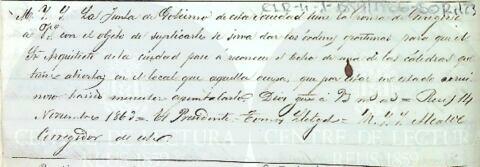 M. Y. Y. La Junta de Gobierno de esta sociedad tiene la honra de dirigirse
a V. con el objeto de suplicarle se sirva dar las órdenes oportunas para que el
Sr. Arquitecto de la ciudad pase á reconocer el techo de una de las cátedras que
tiene abiertas en el local que aquella ocupa, que por estar en estado
ruinoso habrá menester apuntalarlo. Dios gue á V. m. a. = Reus 14
Noviembre 186 = El Presidente = M. Y. Y. Alcalde
Corregidor de esta